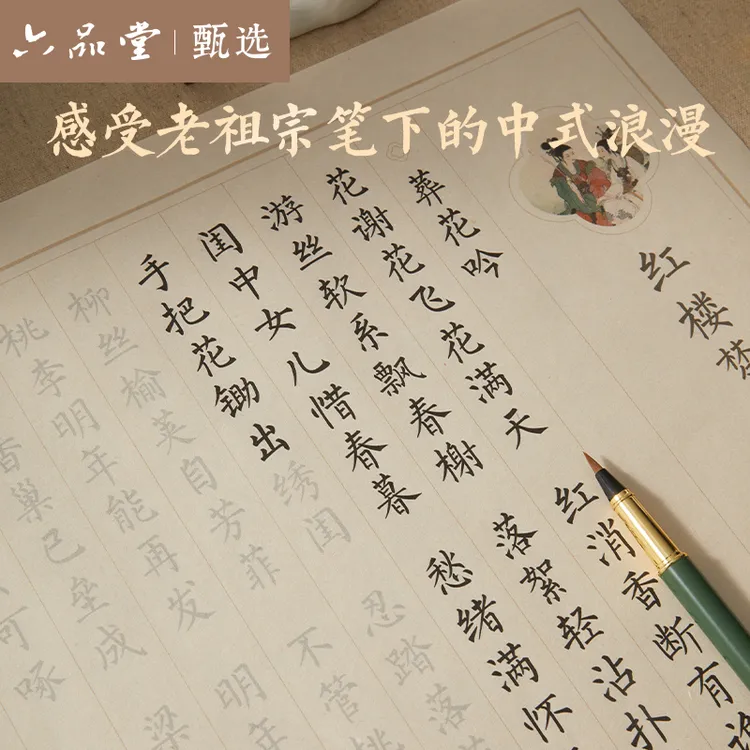 六品堂 | 甄选
感受老祖宗笔下的中式浪漫
红楼梦
葬花吟
花谢花飞花满天
红消香断有
游丝软系飘春榭
落絮轻沾扑
闺中女儿惜春暮
愁绪满怀
手把花锄出绣闺
忍踏落
柳丝榆荚自芳菲
不管桃
桃李明年能再发
明年
香巢已垒成
梁
可啄